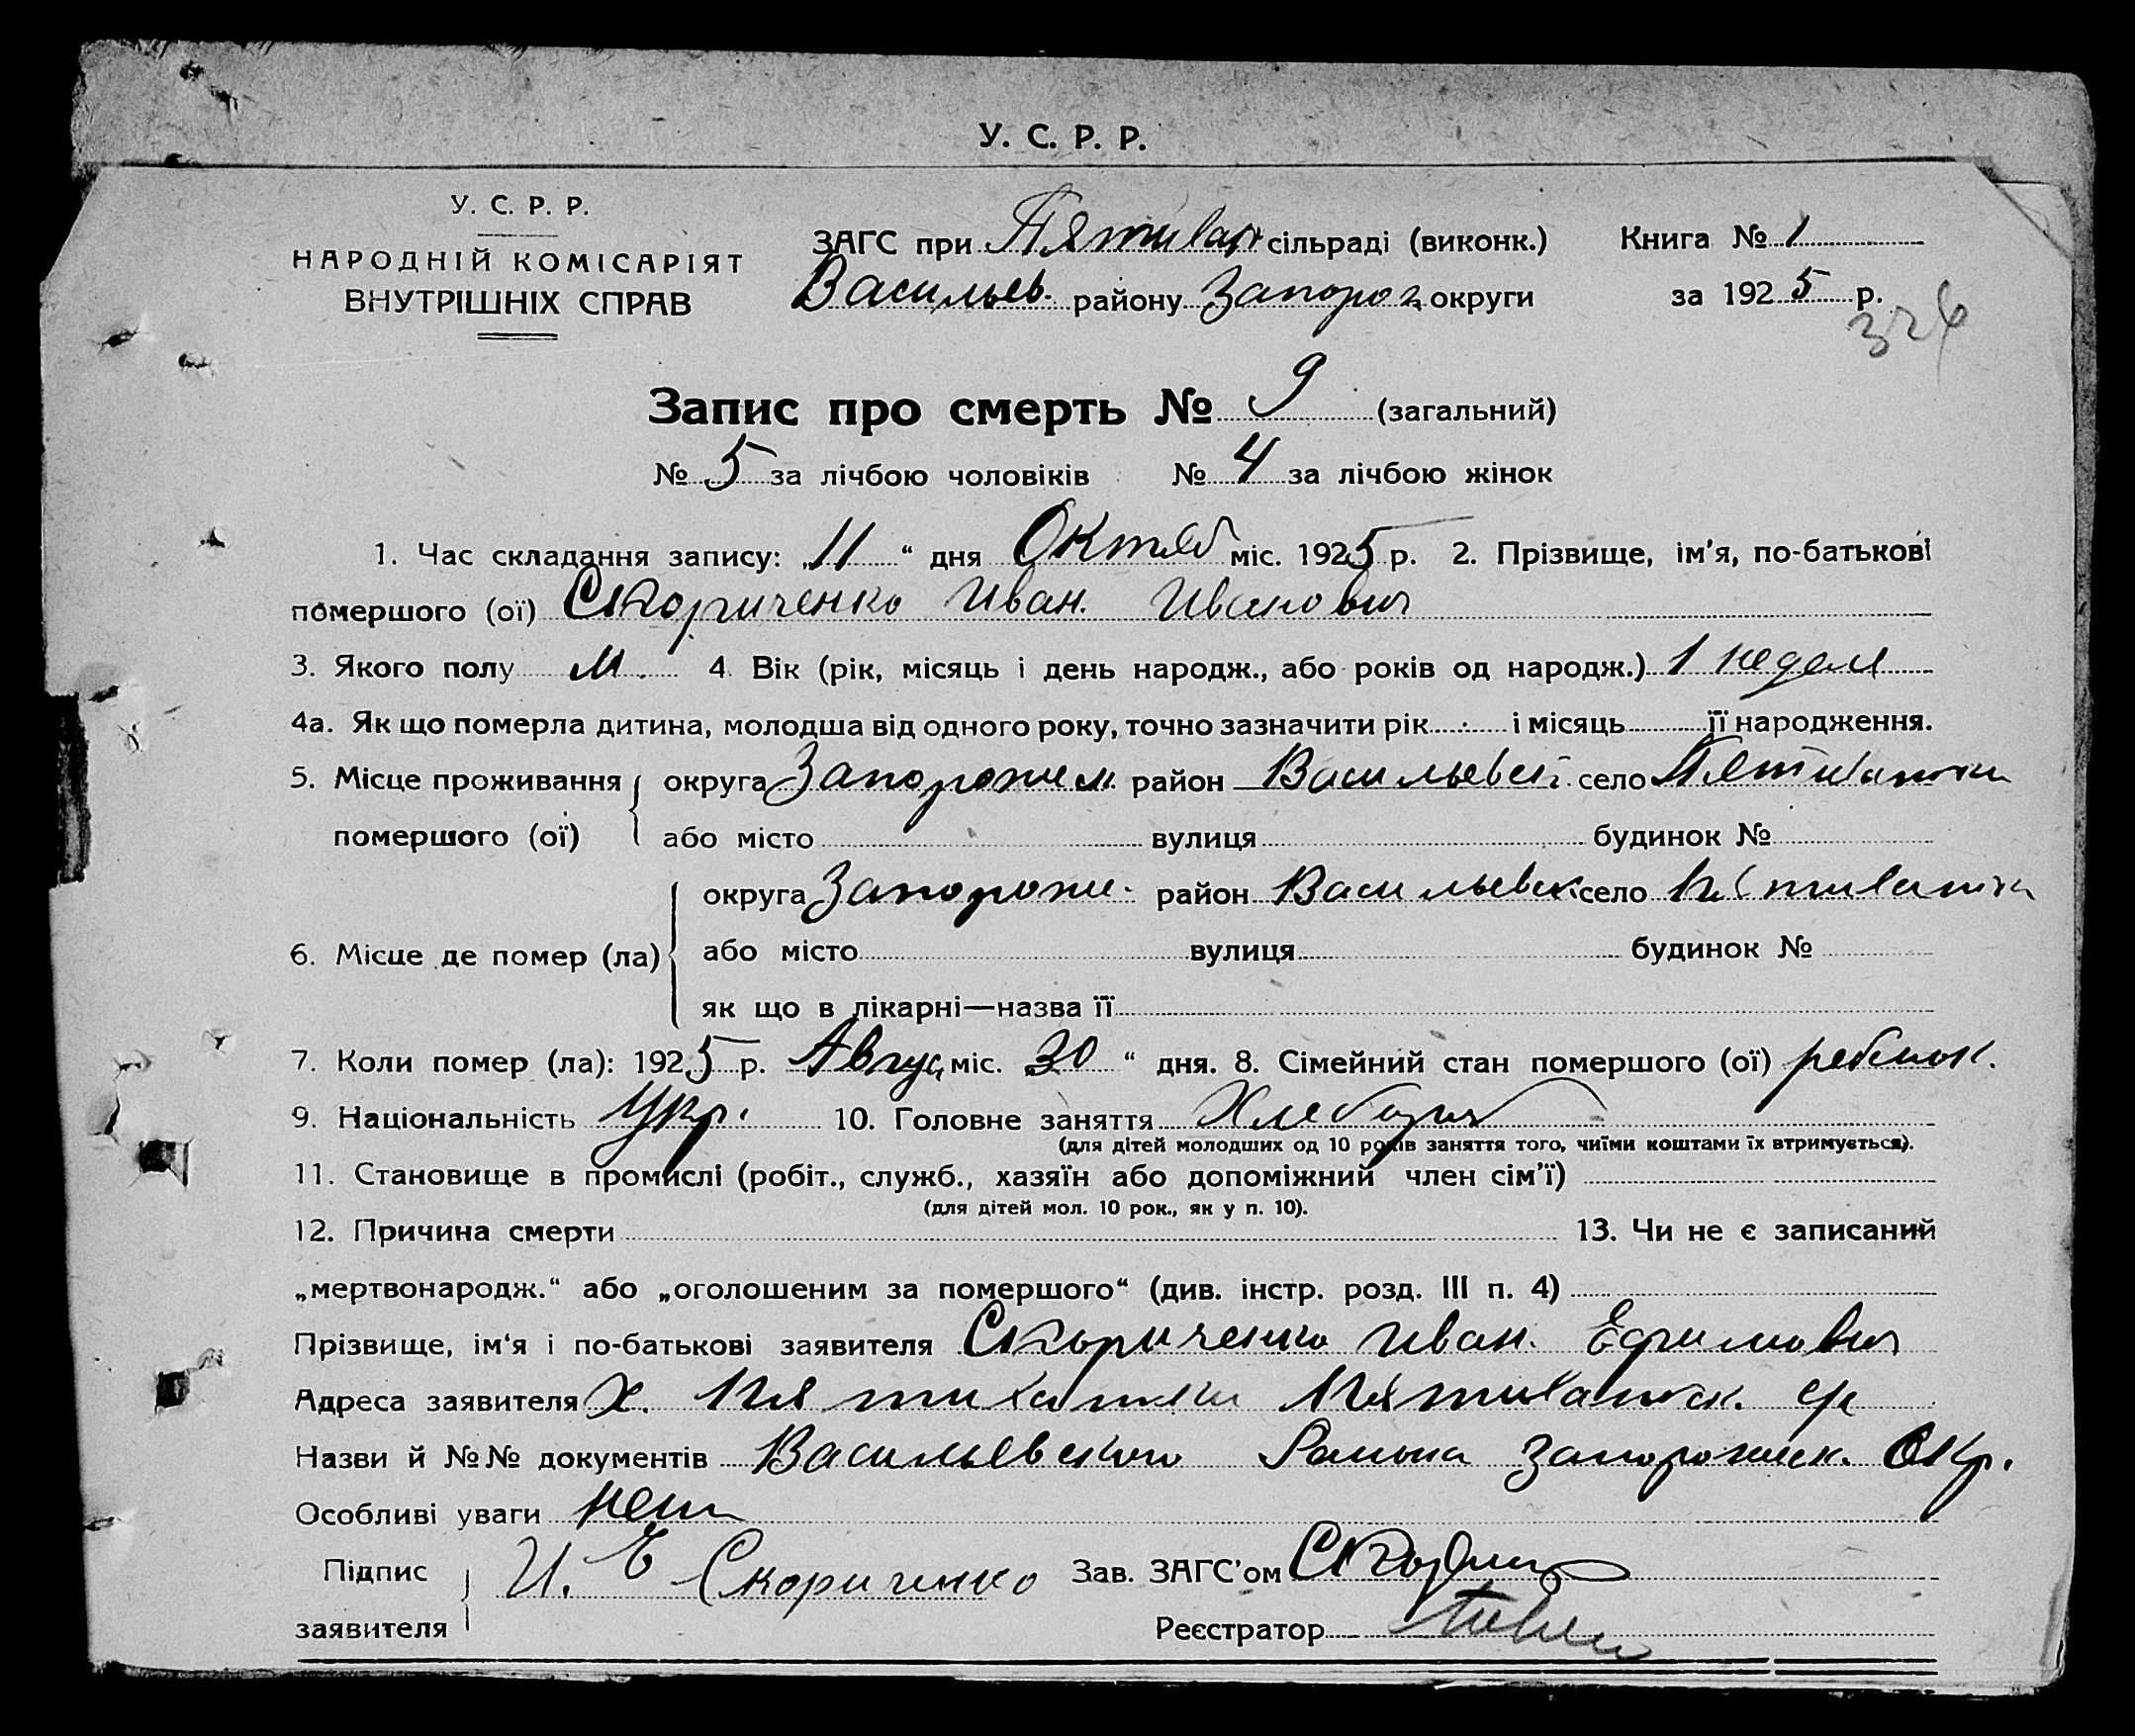 У. С. Р. Р.
У. С. Р. Р.
НАРОДНІЙ КОМІСАРІЯТ
ВНУТРІШНІХ СПРАВ
ЗАГС при Пятихат сільраді (виконк.) Книга № 1
Васильев. району Запорож округи за 1925 р.
326
Запис про смерть № 9 (загальний)
№ 5 за лічбою чоловіків № 4 за лічбою жінок
1. Час складання запису: „11“ дня Октяб міс. 1925 р. 2. Прізвище, ім’я, по-батькові
помершого (ої) Скориченко Иван. Иванович
3. Якого полу м. 4. Вік (рік, місяць і день народж., або років од народж.) 1 неделя
4а. Як що померла дитина, молодша від одного року, точно зазначити рік і місяць її народження.
5. Місце проживання помершого (ої) округа Запорожск. район Васильевск. село Пятихатки
або місто вулиця будинок №
6. Місце де помер (ла) округа Запорож. район Васильевск. село Пятихатки
або місто вулиця будинок №
як що в лікарні—назва її
7. Коли помер (ла): 1925 р. Август міс. 30 “ дня. 8. Сімейний стан помершого (ої) ребенок.
9. Національність Укр. 10. Головне заняття Хлебороб
(для дітей молодших од 10 років заняття того, чиїми коштами їх втримується).
11. Становище в промислі (робіт., служб., хазяїн або допоміжний член сім’ї)
(для дітей мол. 10 рок., як у п. 10).
12. Причина смерти 13. Чи не є записаний
„мертвонародж.“ або „оголошеним за помершого“ (див. інстр. розд. III п. 4)
Прізвище, ім‘я і по-батькові заявителя Скориченко Иван. Ефимович
Адреса заявителя х. Пятихатки Пятихатск. с/с
Назви й №№ документів Васильевского Района Запорожск. Окр.
Особливі уваги нет
Підпис заявителя И. Е Скориченко Зав. ЗАГС’ом
Реєстратор